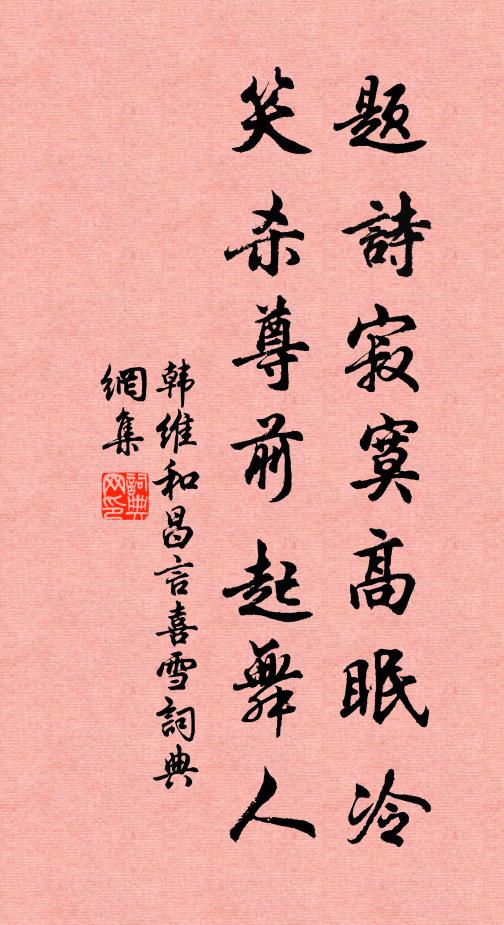 题詩寂寞高眠冷
笑杀尊前起舞人
韩維和昌言喜雪詞典
網集
詞典
网印